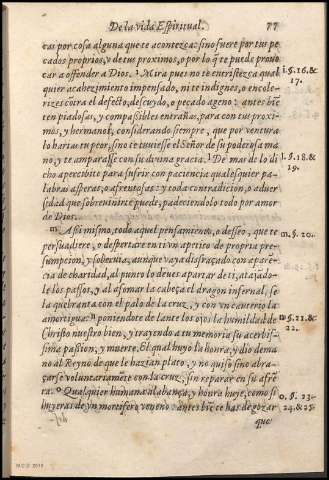 De la vida Espiritual. 77
cas por cosa alguna que te acontezca: sino fuere por tus pe
cados proprios, v de tus proximos, o por lo q̃ te puede prouo
car a offender a Dios. Mira pues no te entristezca qual
quier acabezimiento impensado, ni te indignes, o encole-
rizes cõtra el defecto, descuydo, o pecado ageno: antes biẽ
ten piadosas, y compassibles entrañas, para con tus proxi-
mos, y hermanos, considerando siempre, que por ventura
lo harias tu peor, sino te tuuiesse el Señor de su poderosa ma
no, y te amparasse con su diuina gracia. l De mas de lo di
cho apercibete para sufrir con paciencia qualesquier pa-
labras asperas, o afrentosas: y toda contradicion, o aduer
sidad que sobreuinirte puede, padeciendolo todo por amor
de Dios.
m Assi mismo, todo aquel pensamiento, o desseo, que te
persuadiere, o despertare en ti vn apetito de propria pre-
sumpcion, y soberuia, aunque vaya disfraçado con aparẽ-
cia de charidad, al punto lo deues apartar de ti, atajãdo-
le los passos, y al assomar la cabeça el dragon infernal, se
la quebranta con el palo de la cruz, y con vn cauterio la
amortigua: n poniendote delante los ojos la humildad de
Christo nuestro bien, y trayendo a tu memoria su acerbis-
sima passion, y muerte. El qual huyo la honra, y dio de ma
no al Reyno de que le hazian plato, y no quiso sino abra-
çarse voluntariamẽte con la cruz, sin reparar en su afrẽ
ta. o Qualquier humana alabança, y honra huye, como si
huyeras de vn mortifero veneno: antes biẽ te has de gozar
que
i. §. 16. &
17.
l. §. 18. &
19.
m. §. 20.
n. §. 21. &
22.
o. §. 23.
24. & 25.
M.C.D. 2018